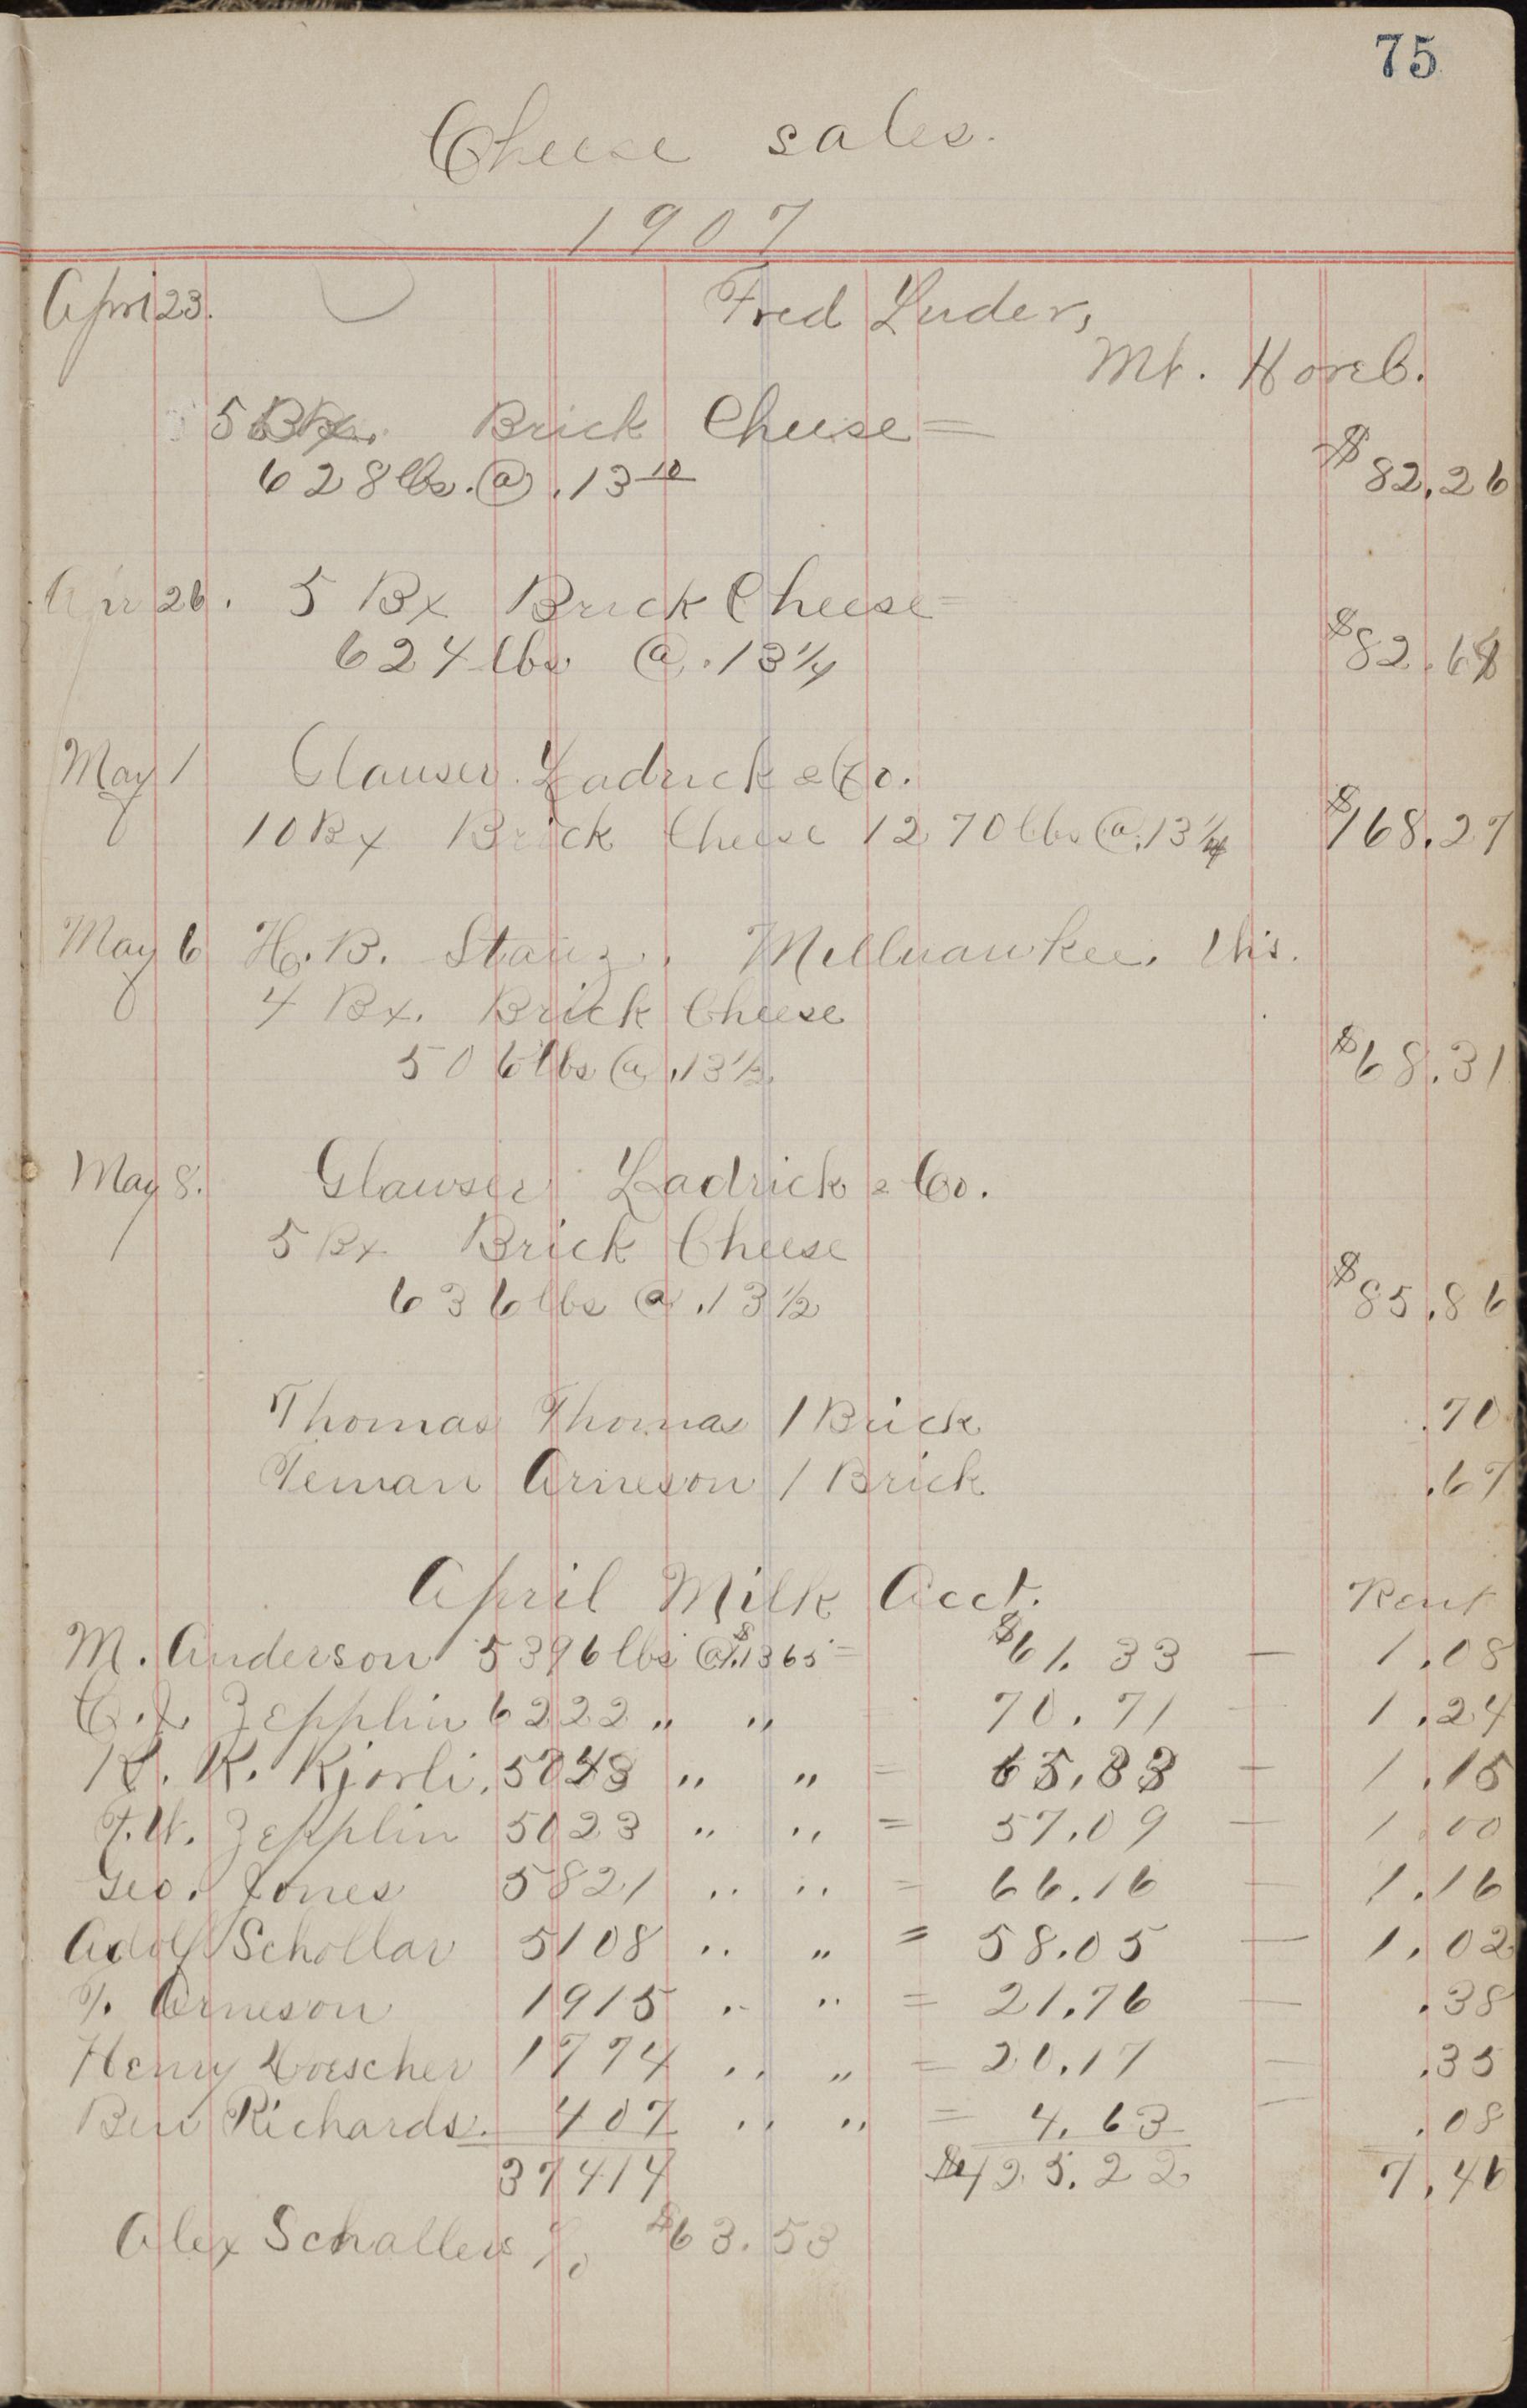 75
Cheese sales.
1907
Apri 23. Fred Luder,
Mt. Horeb.
5 Bx. Brick Cheese =
628 lbs. @ .13 10 $82.26
Apr 26. 5 Bx Brick Cheese =
624 lbs @ .13 1/4 $82.68
May 1 Glauser Ladrick & Co.
10 Bx Brick Cheese 1270 lbs @ .13 1/4 $168.27
May 6 H. B. Stanz. Milluawkee, Wis.
4 Bx. Brick Cheese
506 lbs @ .13 1/2 $68.31
May 8. Glawser Ladrick & Co.
5 Bx Brick Cheese
636 lbs @ .13 1/2 $85.86
Thomas Thomas 1 Brick .70
Teman Arneson 1 Brick .67
April Milk Acct. Rent
M. Anderson 5396 lbs @ $1.1365 = $61.33 — 1.08
C. J. Zepplin 6222 „ „ 70.71 — 1.24
K. K. Kjorli, 5748 „ „ = 65.33 — 1.15
F. W. Zepplin 5023 „ „ = 57.09 — 1.00
Geo. Jones 5821 „ „ = 66.16 — 1.16
Adolf Schollar 5108 „ „ = 58.05 — 1.02
T. Arneson 1915 „ „ = 21.76 — .38
Henry Loescher 1774 „ „ = 20.17 — .35
Ben Richards. 407 „ „ = 4.63 — .08
37414 $425.22 7.46
Alex Schallers % $63.53